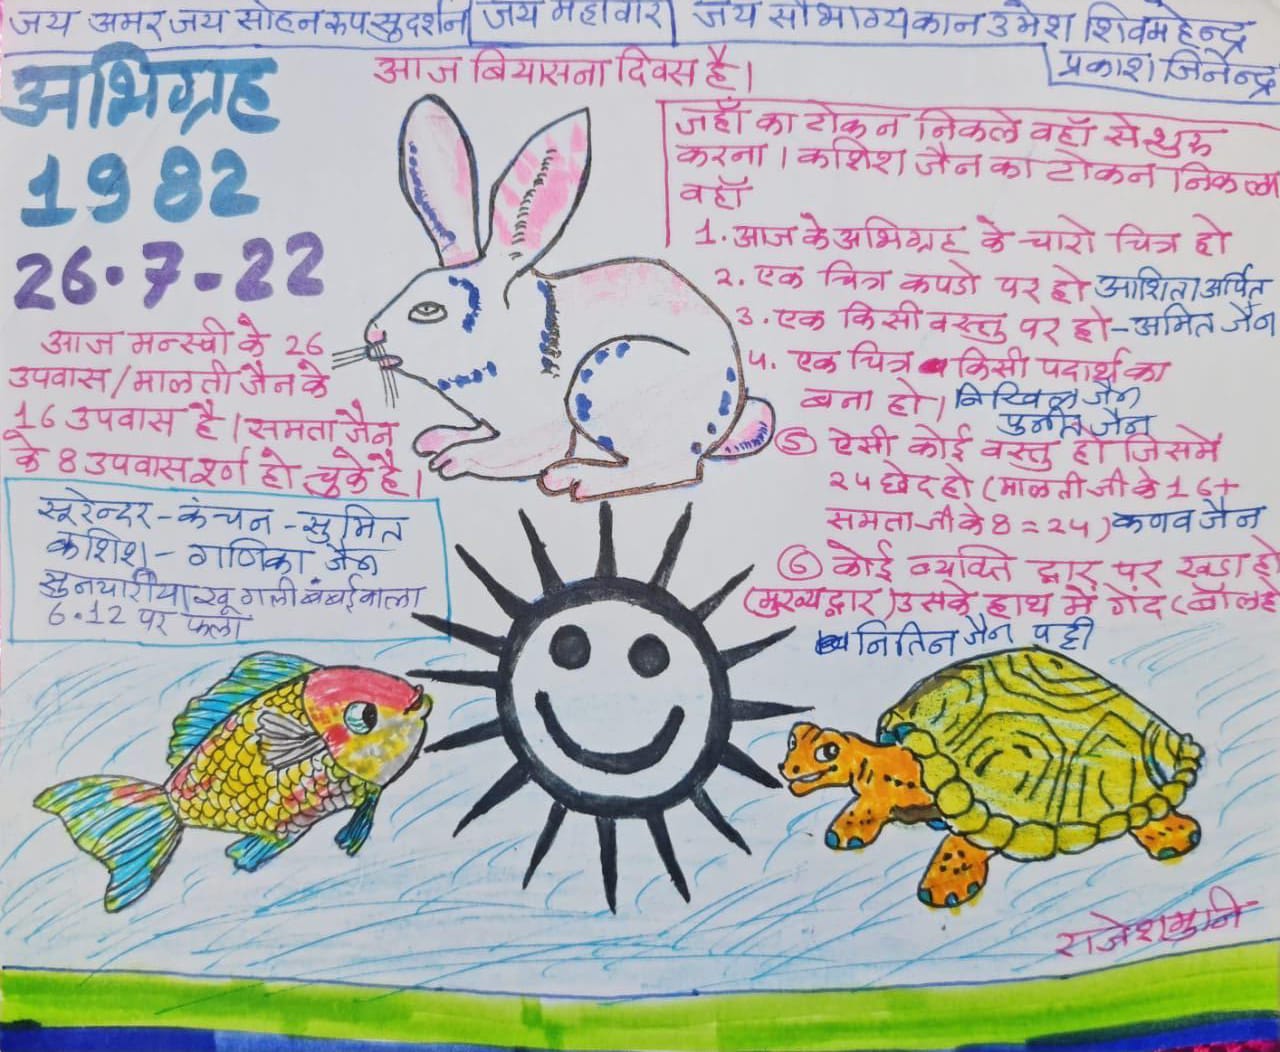 जय अमर जय सोहन रूप सुदर्शन जय महावीर जय सौभाग्य कान उमेश शिवमहेन्द्र
प्रकाश जिनेन्द्र
आज बियासना दिवस है।
अभिग्रह
1982
26.7-22
आज मनस्वी के 26
उपवास/मालती जैन के
16 उपवास है। समता जैन
के 8 उपवास पूर्ण हो चुके है।
सूरेन्दर-कंचन-सुमित
कशिश-गणिका जैन
6.12 पर फला
जहाँ का टोकन निकले वहाँ से शुरू
करना। कशिश जैन का टोकन निकला
वहाँ
1. आज के अभिग्रह के चारो चित्र हो
2. एक चित्र कपडो पर हो आशिता अर्पित
3. एक किसी वस्तु पर हो-अमित जैन
4. एक चित्र किसी पदार्थ का
बना हो। निखिल जैन
पुनीत जैन
5 ऐसी कोई वस्तु हो जिसमे
24 छेद हो (मालती जी के 16+
समता जी के 8=24) कणव जैन
6 कोई व्यक्ति द्वार पर खडा हो
(मुख्य द्वार) उसके हाथ में गेंद (बॉल हो
नितिन जैन पट्टी
राजेशमुनि